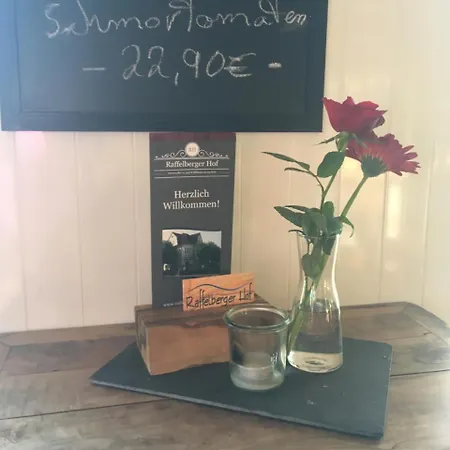 Schmortomaten
- 22,90€ -
Raffelberger Hof
Herzlich
Willkommen!
Raffelberger Hof